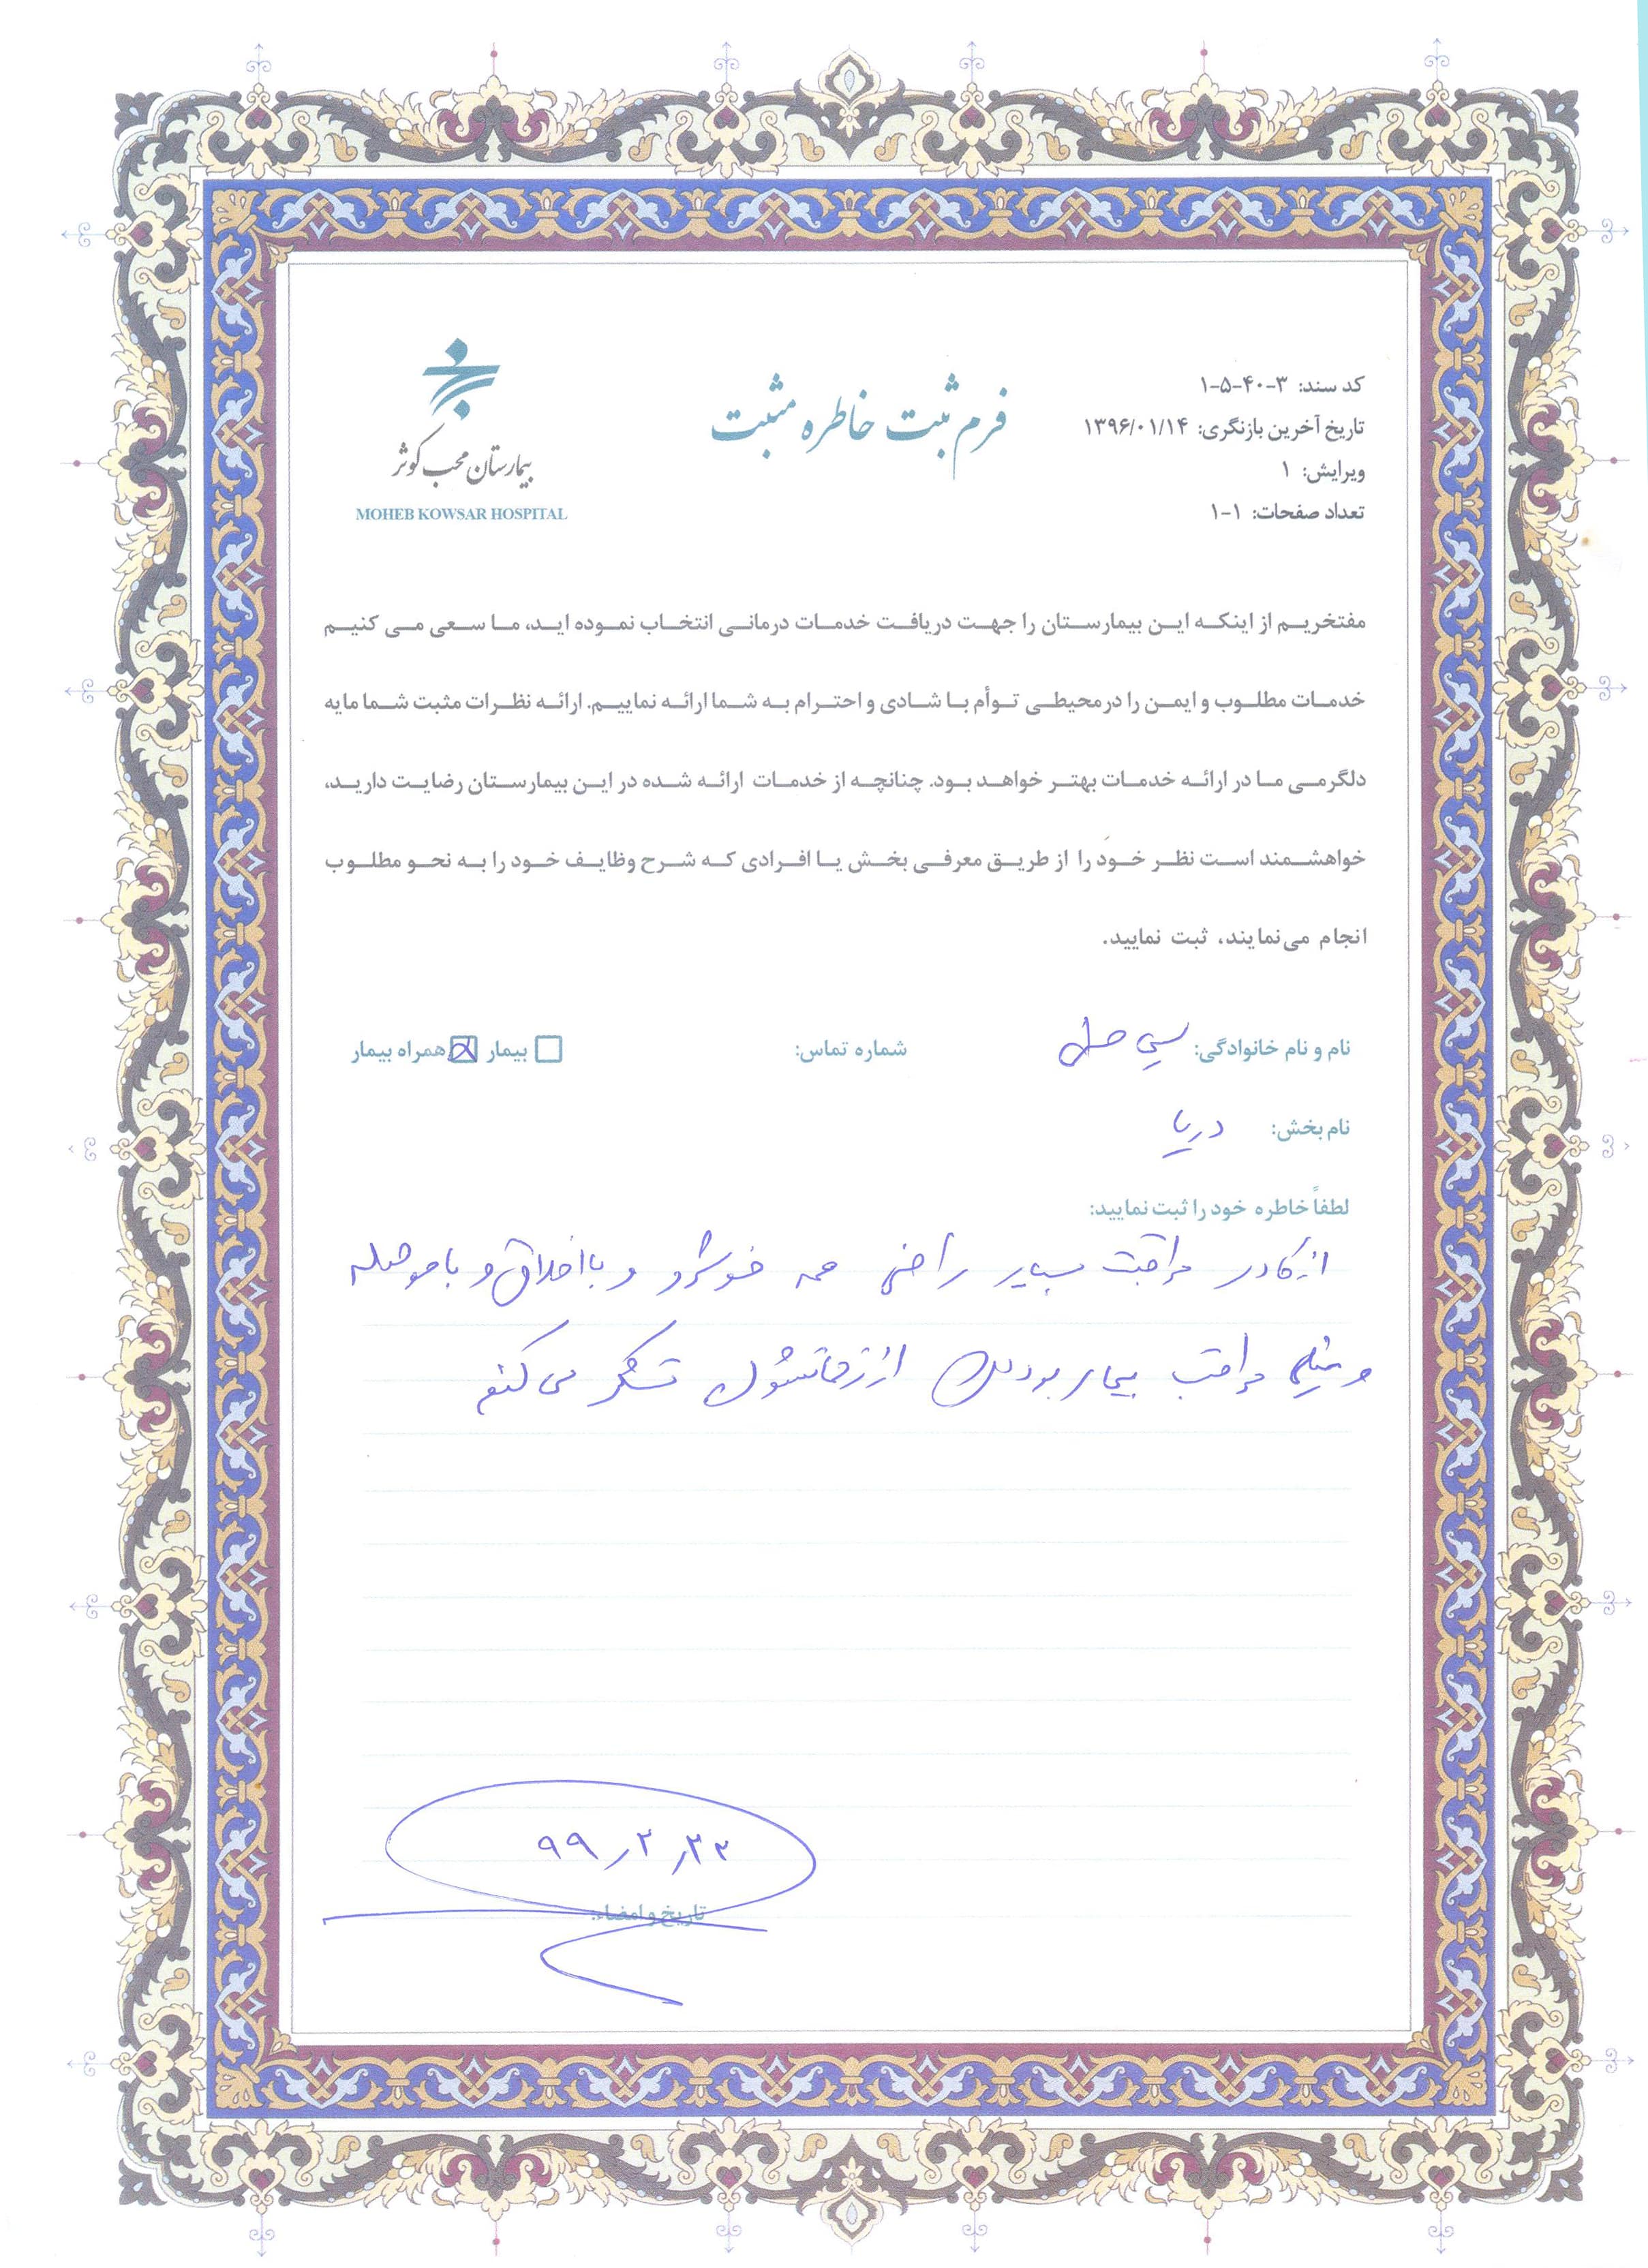 کد سند: ۳-۴۰-۵-۱
تاریخ آخرین بازنگری: ۱۳۹۶/۰۱/۱۴
ویرایش: ۱
تعداد صفحات: ۱-۱
فرم ثبت خاطره مثبت
بیمارستان محب کوثر
MOHEB KOWSAR HOSPITAL
مفتخریم از اینکه این بیمارستان را جهت دریافت خدمات درمانی انتخاب نموده اید، ما سعی می کنیم
خدمات مطلوب و ایمن را در محیطی توأم با شادی و احترام به شما ارائه نماییم. ارائه نظرات مثبت شما مایه
دلگرمی ما در ارائه خدمات بهتر خواهد بود. چنانچه از خدمات ارائه شده در این بیمارستان رضایت دارید،
خواهشمند است نظر خود را از طریق معرفی بخش یا افرادی که شرح وظایف خود را به نحو مطلوب
انجام می‌نمایند، ثبت نمایید.
نام و نام خانوادگی: شماره تماس: بیمار همراه بیمار
نام بخش: دریا
لطفاً خاطره خود را ثبت نمایید:
از کادر مراقبت بسیار راضی همه خوشرو و بااخلاق و باحوصله
و مراقب بیمار بودن از زحماتشون تشکر می کنم
۹۹٫۲٫۲۲
تاریخ و امضاء: